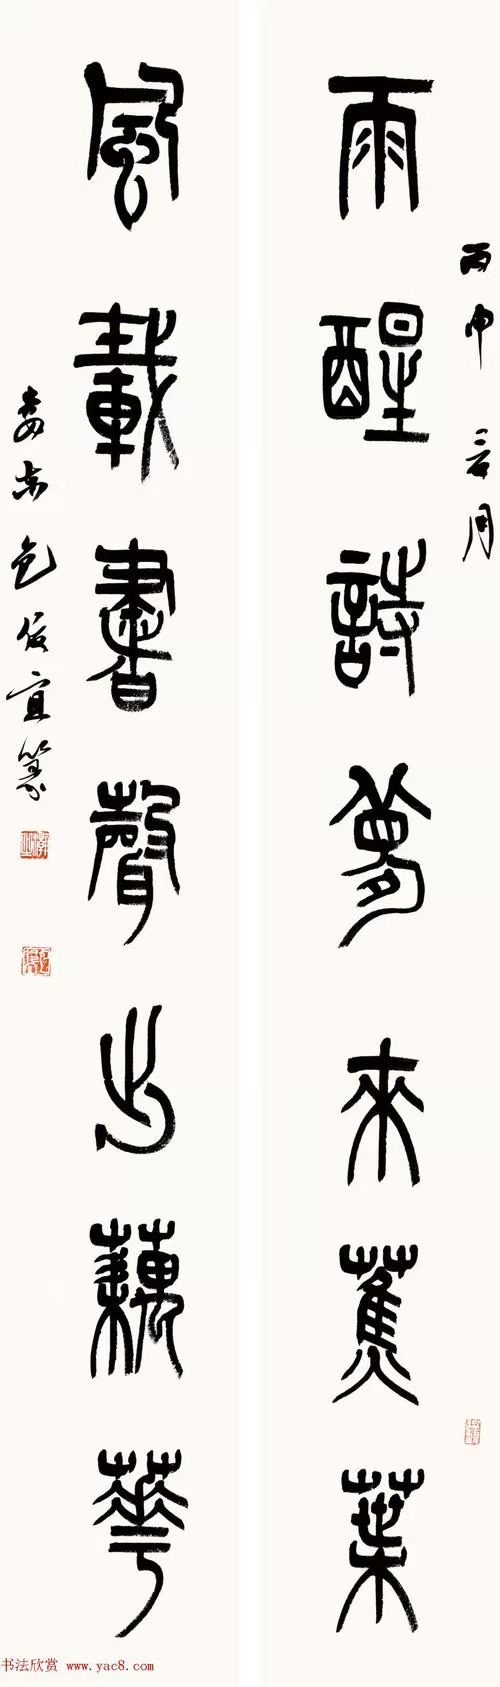 丙申 月
雨醒詩夢來蕉葉
風載書聲出藕華
婁東包俊宜篆
书法欣赏 www.yac8.com